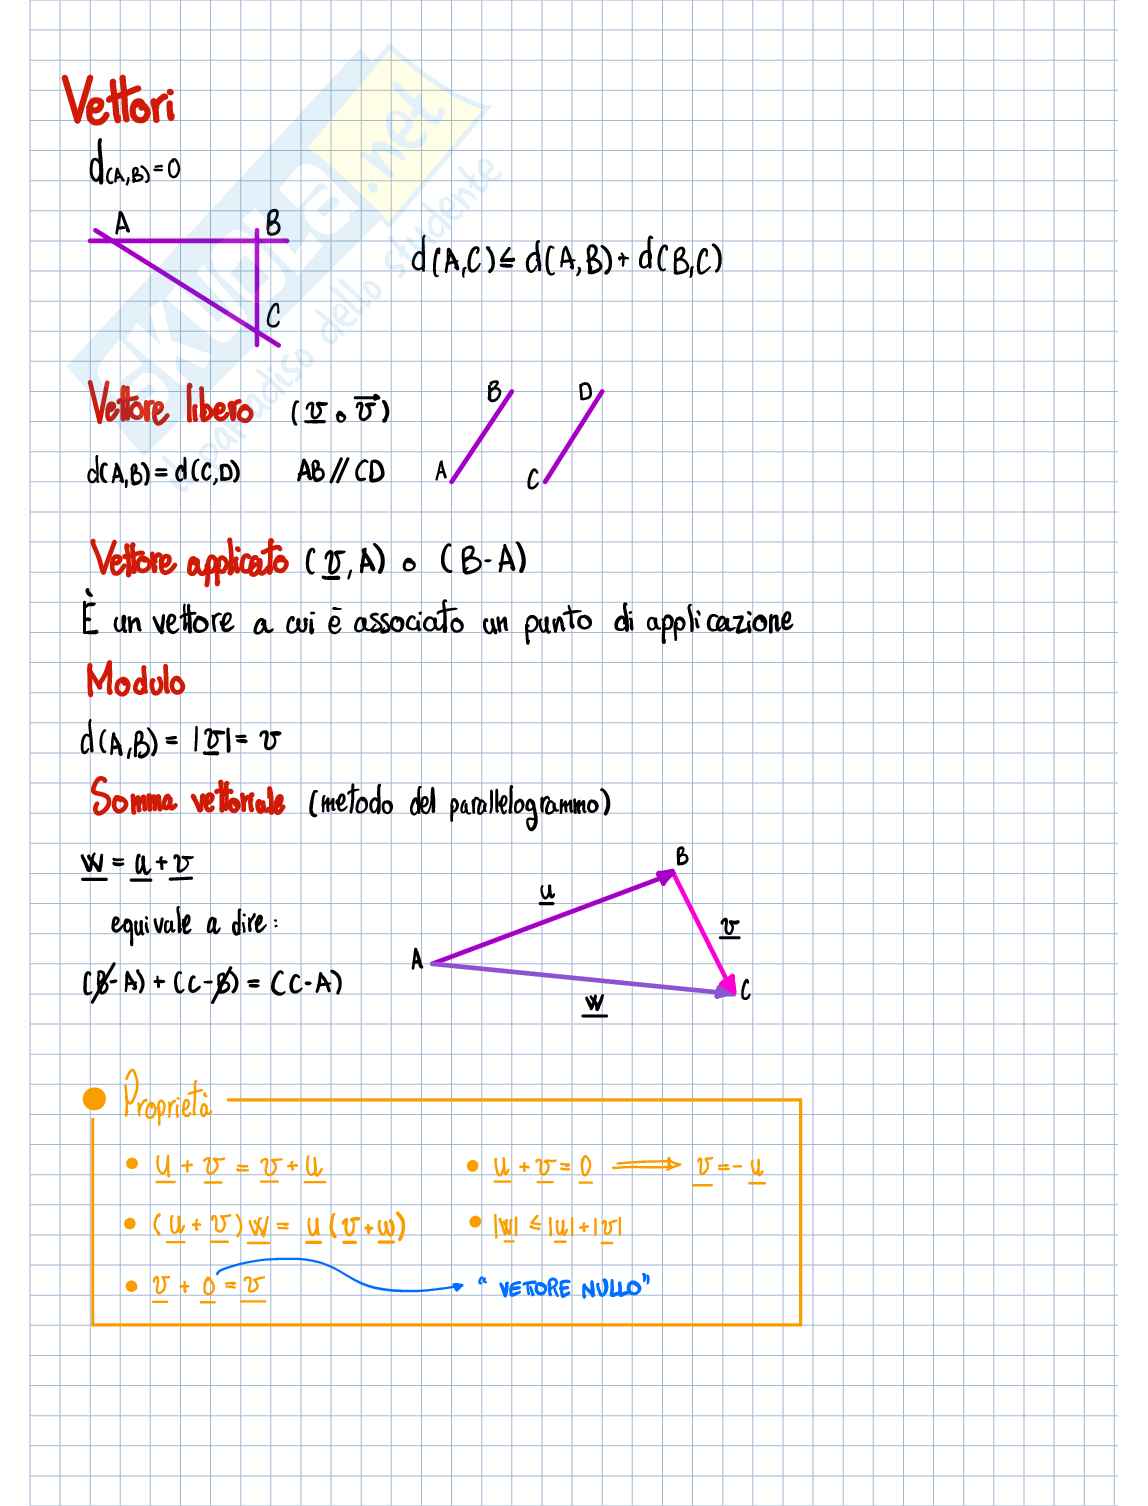 Vettori
d(A,B)=0
A B
C
d(A,C) ≤ d(A,B) + d(B,C)
SKUOLA.net
il paradiso dello studente
Vettore libero (v̲ o v⃗)
B D
A C
d(A,B) = d(C,D) AB // CD
Vettore applicato (v̲, A) o (B-A)
È un vettore a cui è associato un punto di applicazione
Modulo
d(A,B) = |v̲| = v
Somma vettoriale (metodo del parallelogrammo)
w̲ = u̲ + v̲
equivale a dire:
(B-A) + (C-B) = (C-A)
B
u̲
v̲
A
C
w̲
Proprietà
• u̲ + v̲ = v̲ + u̲
• (u̲ + v̲) w̲ = u̲ (v̲ + w̲)
• v̲ + 0̲ = v̲
• u̲ + v̲ = 0̲ ⟹ v̲ = - u̲
• |w̲| ≤ |u̲| + |v̲|
"VETTORE NULLO"